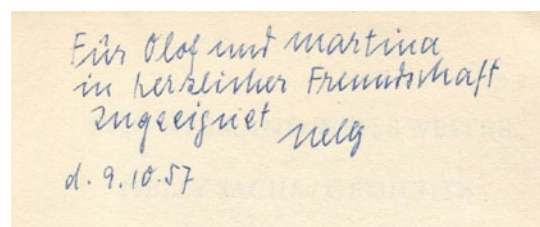 Für Olof und Martina
in herzlicher Freundschaft
zugeeignet Nelly
d. 9.10.57